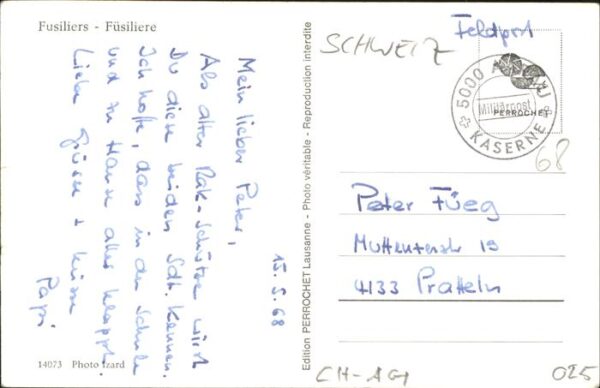 Fusiliers - Füsiliere
15.5.68
Mein lieber Peter,
Als alter Rak-Schütze wirst
Du diese beiden Sdt. kennen.
Ich hoffe, dass in der Schule
und zu Hause alles klappt.
Liebe Grüsse + Küsse
Papi
14073 Photo Izard
Edition PERROCHET Lausanne - Photo véritable - Reproduction interdite
SCHWEIZ
Feldpost
5000
Militärpost
KASERNE
PERROCHET
68
Peter Füeg
Muttenzerstr 19
4133 Pratteln
CH-AG1
025